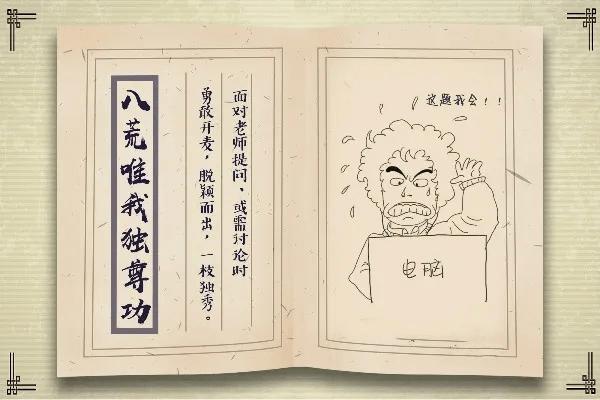 八荒唯我独尊功
面对老师提问、或需讨论时
勇敢开麦，脱颖而出，一枝独秀。
这题我会！！
电脑